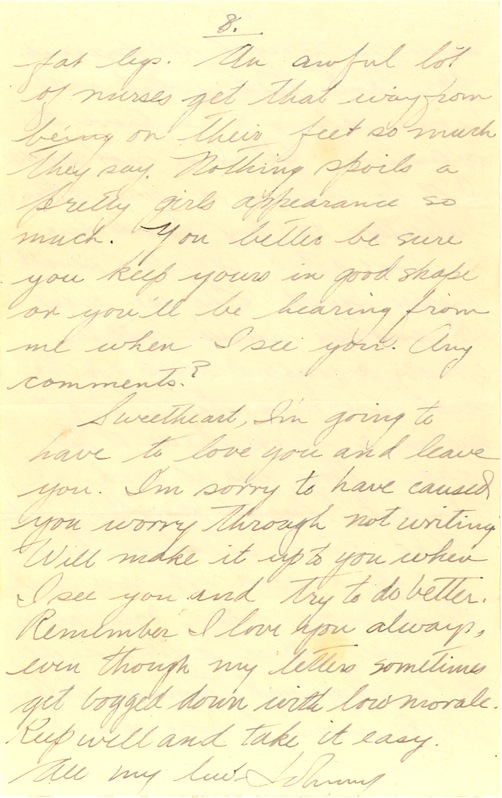 8.
fat legs. An awful lot
of nurses get that way from
being on their feet so much
they say. Nothing spoils a
pretty girls appearance so
much. You better be sure
you keep yours in good shape
or you'll be hearing from
me when I see you. Any
comments?
Sweetheart, I'm going to
have to love you and leave
you. I'm sorry to have caused
you worry through not writing
Will make it up to you when
I see you and try to do better.
Remember I love you always,
even though my letters sometimes
get bogged down with low morale.
Keep well and take it easy.
All my love Johnny